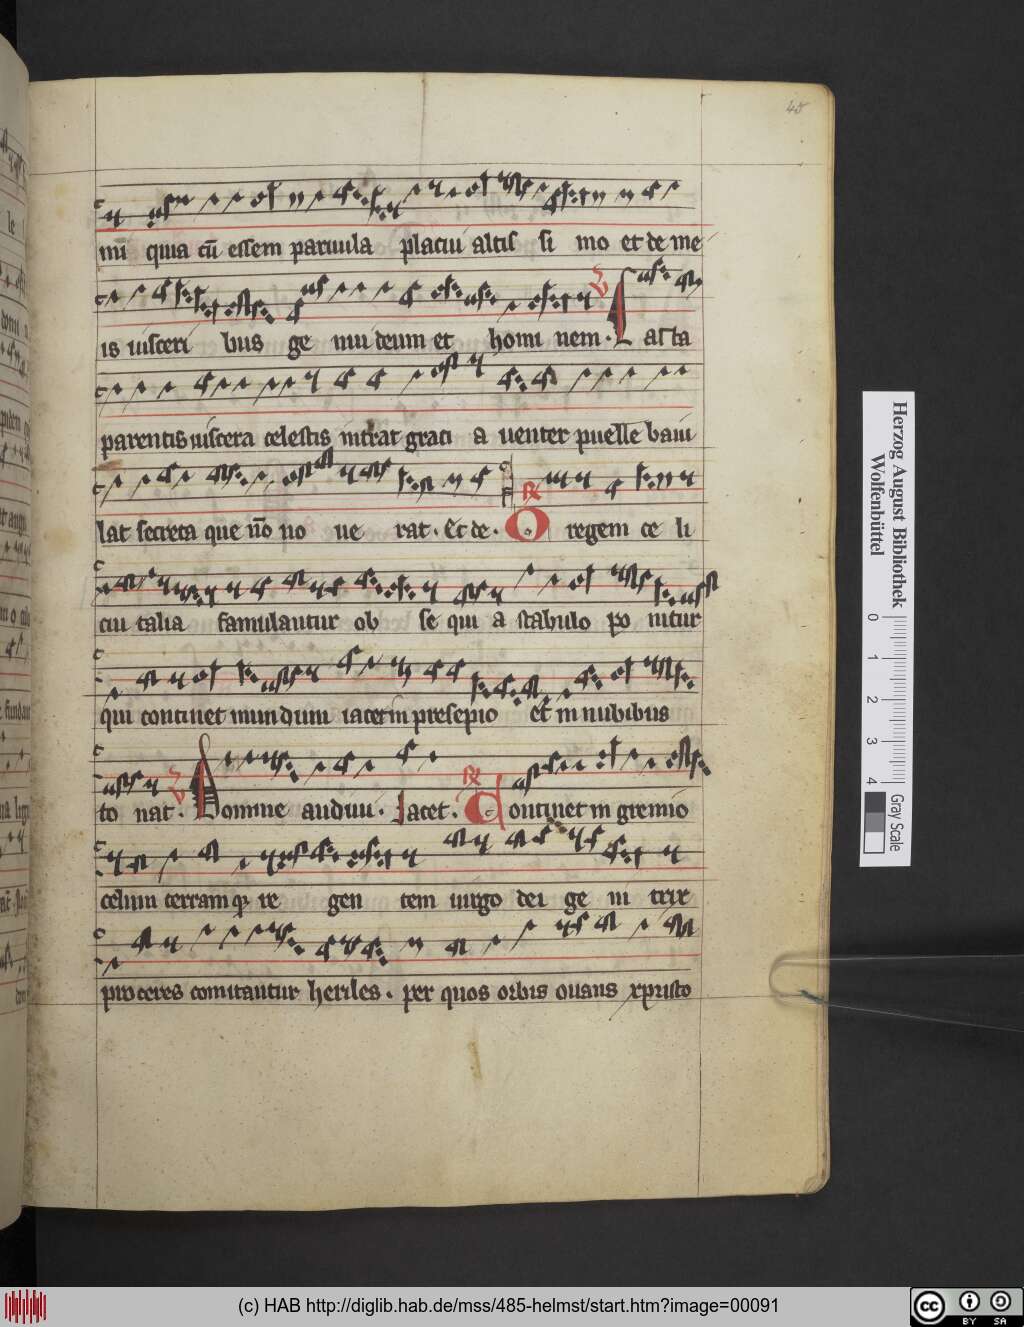 45
mi quia cū essem paruula placui altissimo et de me
is uisceribus genui deum et hominem · V Casta
parentis uiscera celestis intrat gracia uenter puelle baiu
lat secreta que nō nouerat · Et de · R O regem celi
cui talia famulantur obsequia stabulo ponitur
qui continet mundum iacet in presepio et in nubibus
tonat · V Domine audiui · Jacet · R Continet in gremio
celum terramq; regentem uirgo dei genitrix
proceres comitantur heriles · per quos orbis ouans xpristo
Herzog August Bibliothek
Wolfenbüttel
0 1 2 3 4
Gray Scale
(c) HAB http://diglib.hab.de/mss/485-helmst/start.htm?image=00091
cc BY SA